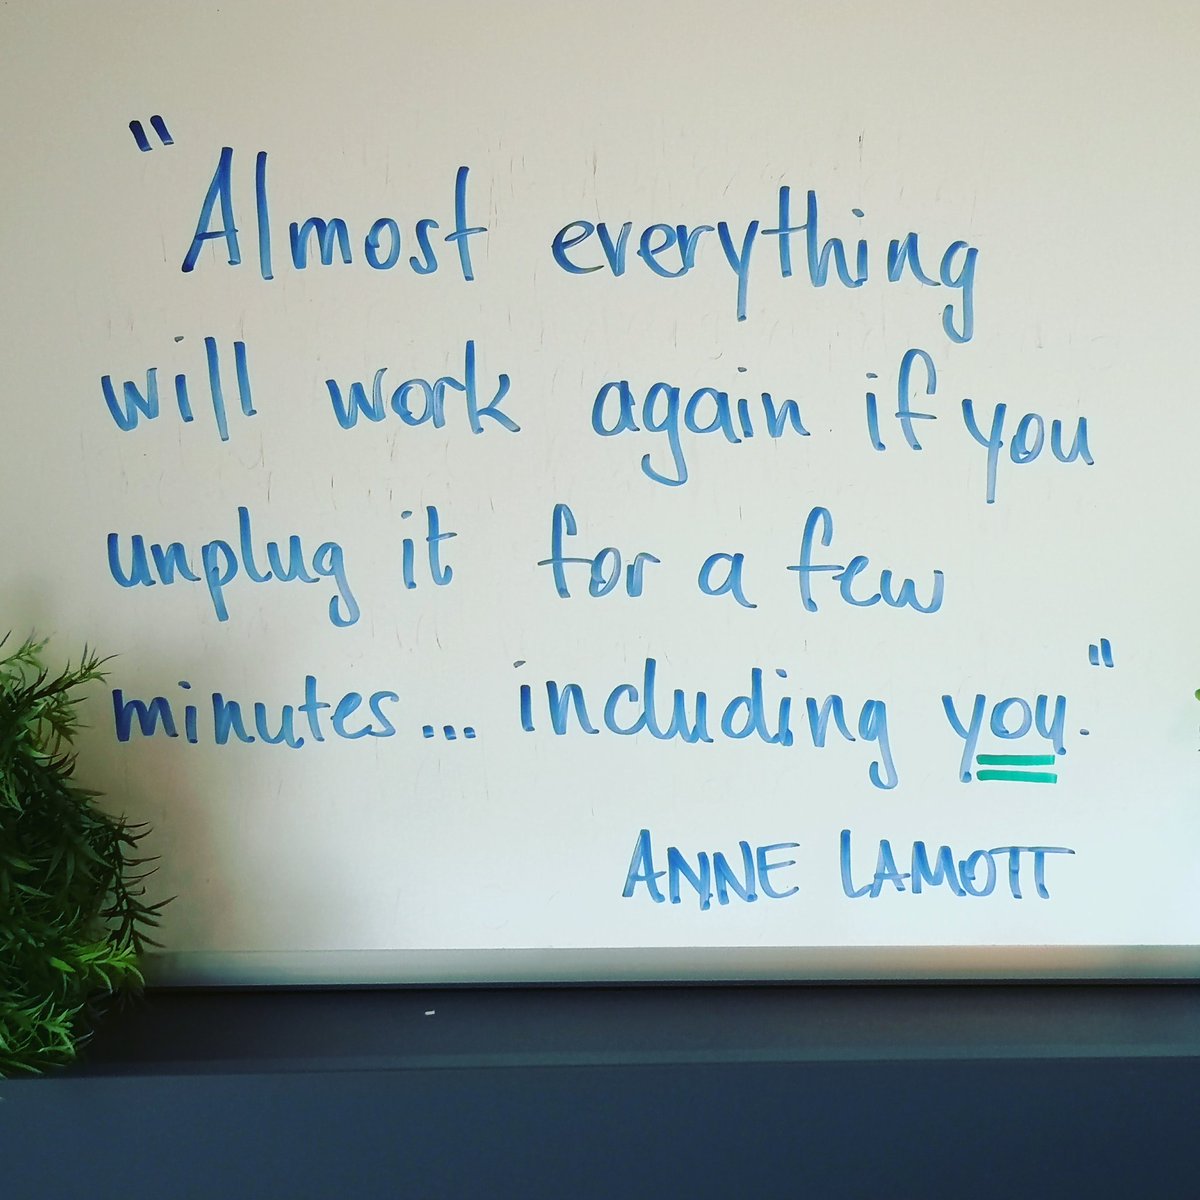 "Almost everything
will work again if you
unplug it for a few
minutes... including you."
ANNE LAMOTT